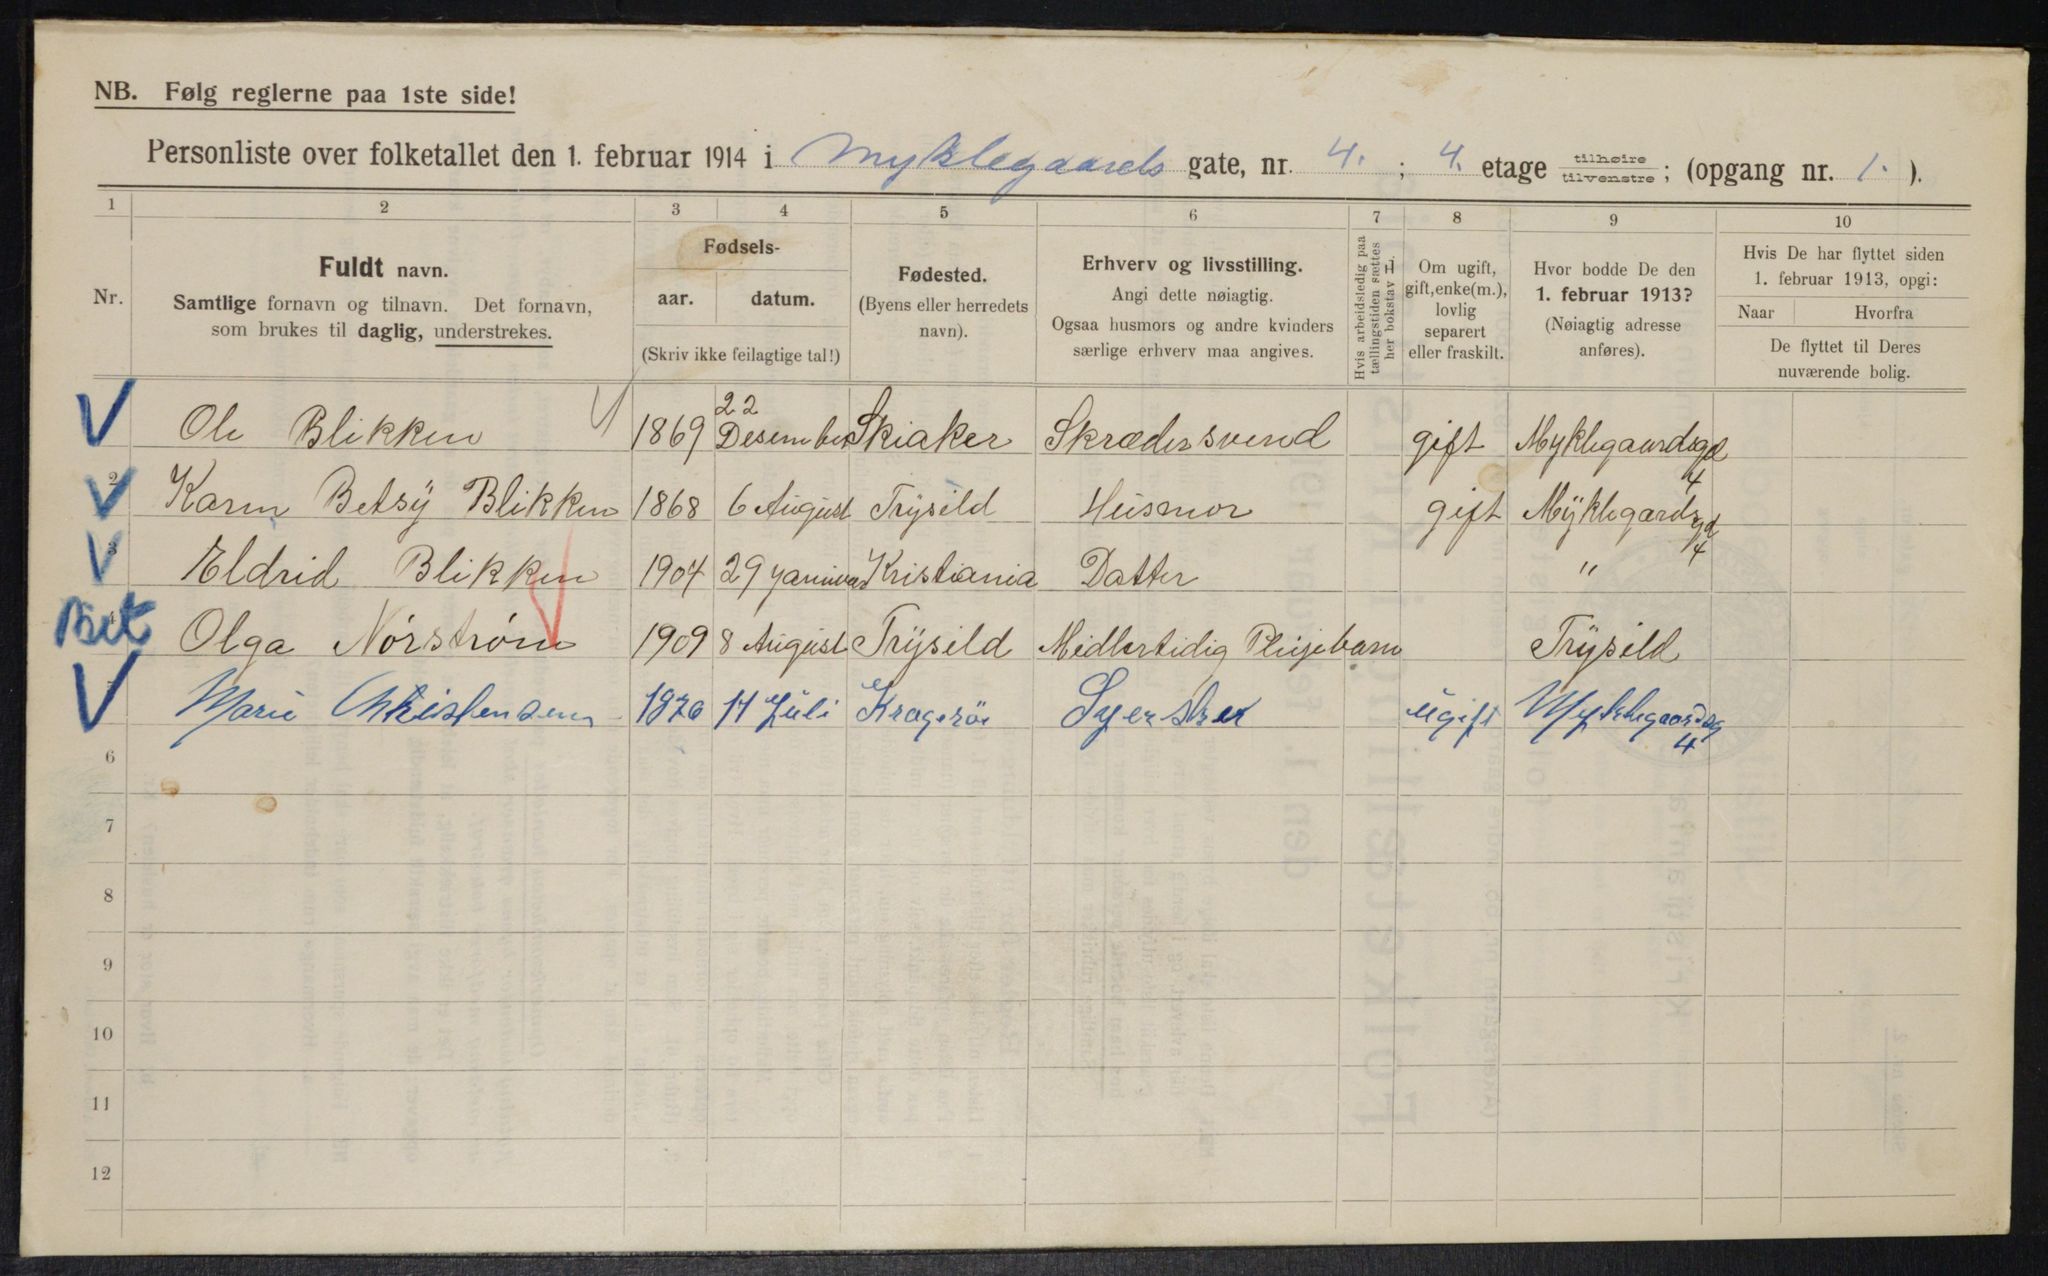 NB. Følg reglerne paa 1ste side!
Personliste over folketallet den 1. februar 1914 i Myklegaards gate, nr. 4. ; 4. etage tilhøire tilvenstre ; (opgang nr. 1. ).
1 2 3 4 5 6 7 8 9 10
Nr.
Fuldt navn.
Samtlige fornavn og tilnavn. Det fornavn,
som brukes til daglig, understrekes.
Fødsels-
aar. datum.
(Skriv ikke feilagtige tal!)
Fødested.
(Byens eller herredets
navn).
Erhverv og livsstilling.
Angi dette nøiagtig.
Ogsaa husmors og andre kvinders
særlige erhverv maa angives.
Hvis arbeidsledig paa
tællingstiden sættes
her bokstav L.
Om ugift,
gift, enke(m.),
lovlig
separert
eller fraskilt.
Hvor bodde De den
1. februar 1913?
(Nøiagtig adresse
anføres).
Hvis De har flyttet siden
1. februar 1913, opgi:
Naar Hvorfra
De flyttet til Deres
nuværende bolig.
Ole Blikken 1869 22 Desember Skiaker Skrædersvend gift Myklegaardsgd 4
2 Karen Betsÿ Blikken 1868 6 August Trÿsild Husmor gift Mÿklegardsgd 4
3 Eldrid Blikken 1904 29 Januar Kristiania Datter "
Bet 4 Olga Nørstrøm 1909 8 August Trÿsild Midlertidig Pleiebarn Trÿsild
Marie Christensen 1876 14 Juli Kragerøe Syerske ugift Myklegaardsg 4
6
7
8
9
10
11
12